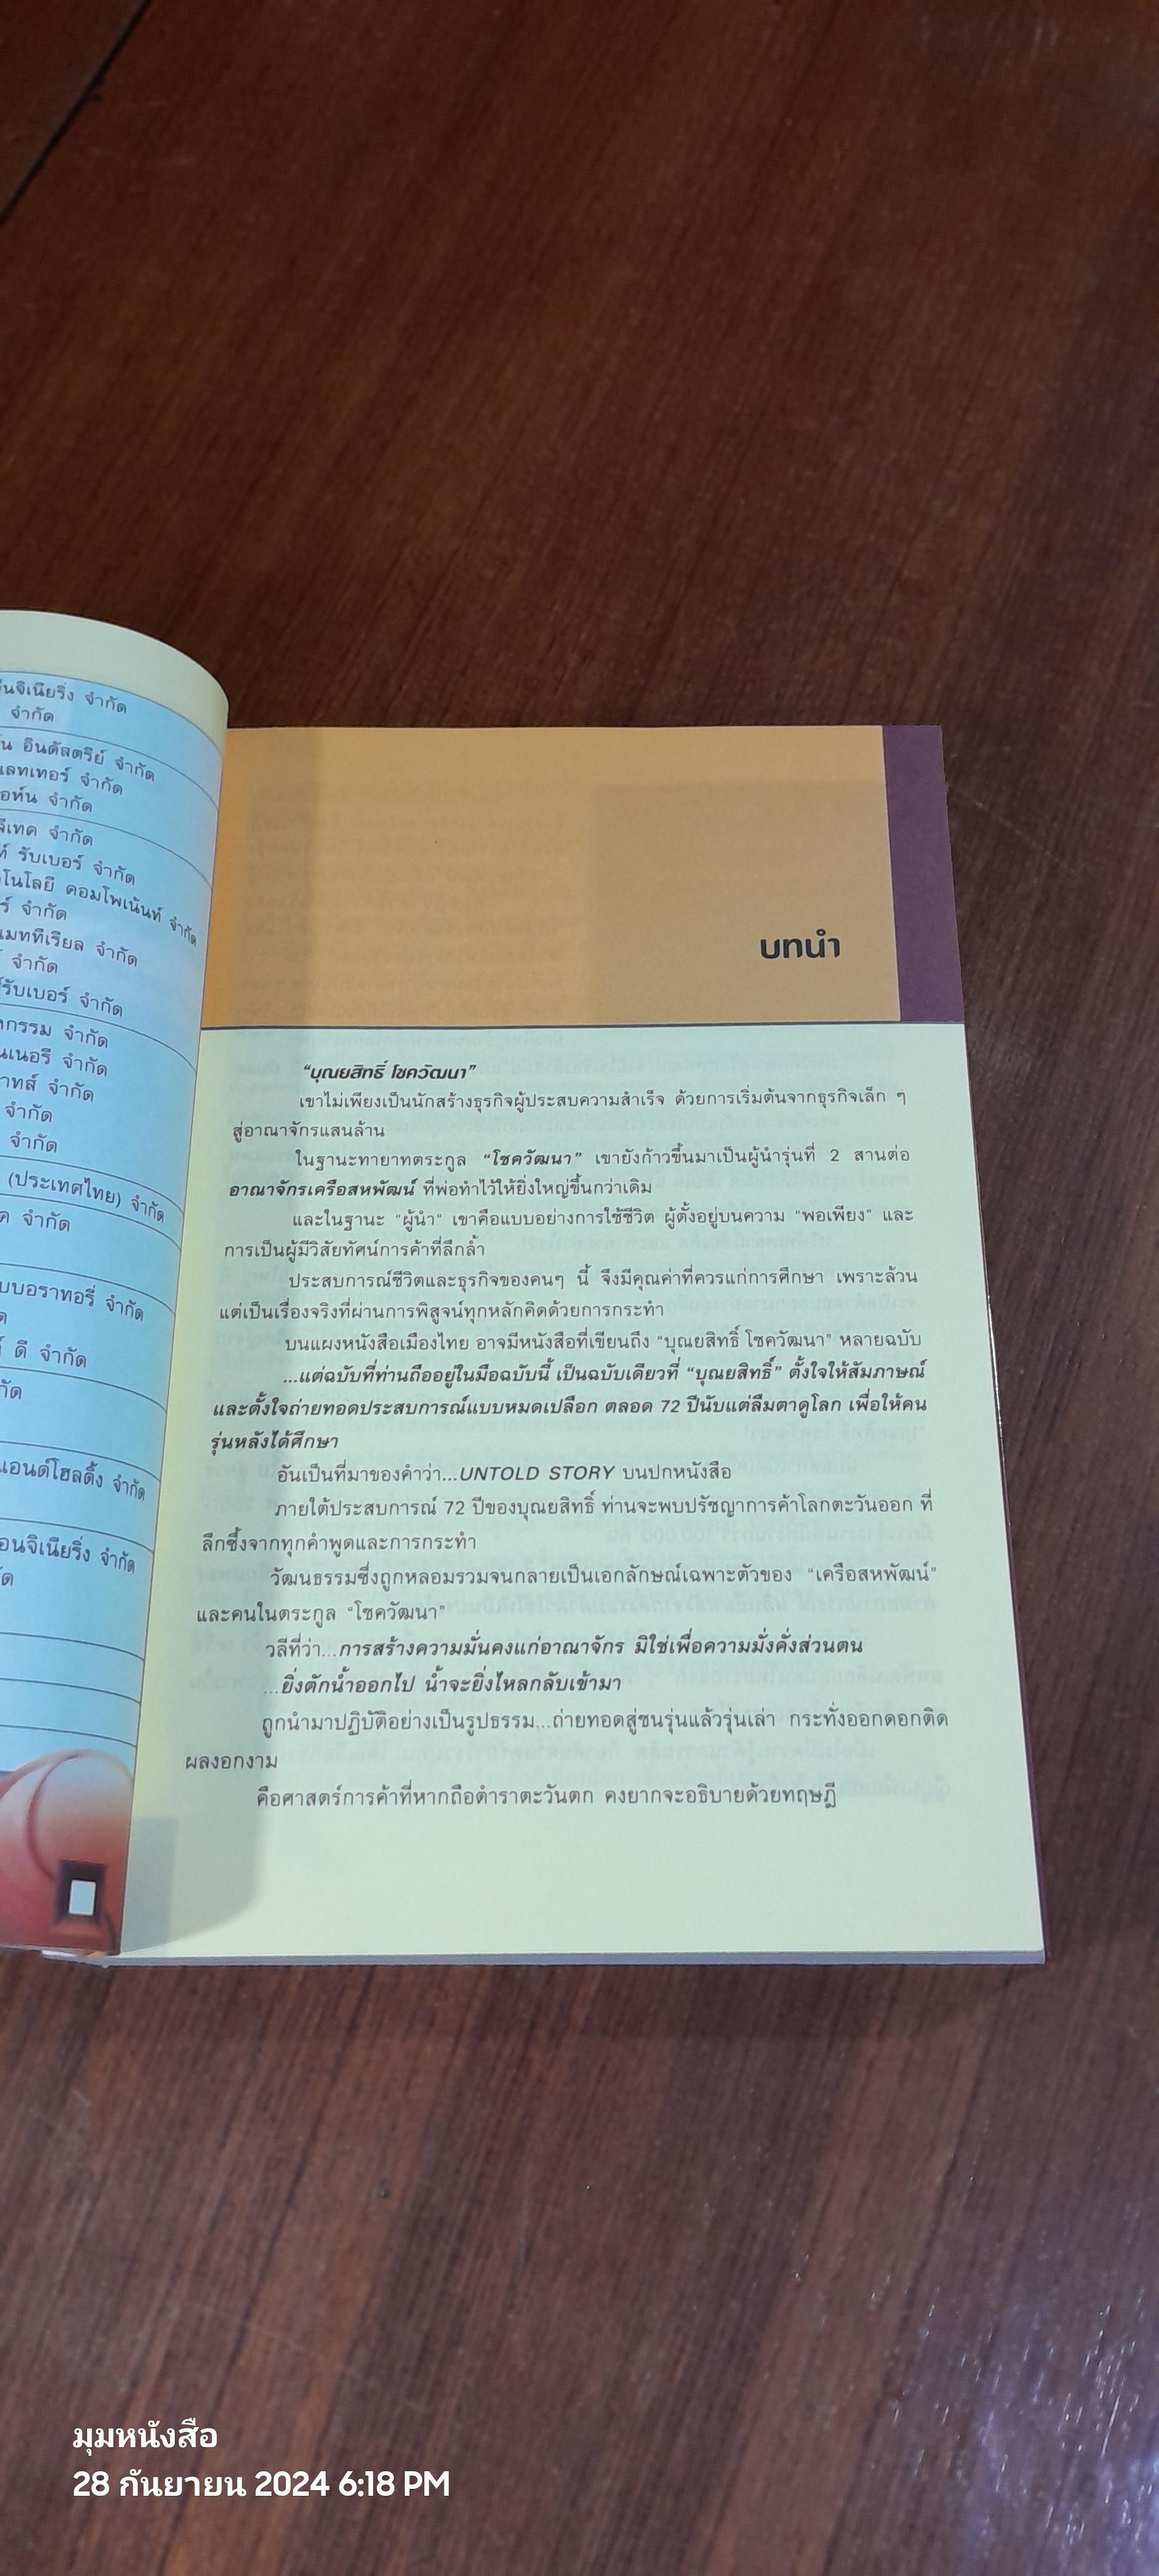 จำกัด
จำกัด
อินดัสตรีย์ จำกัด
จำกัด
จำกัด
จำกัด
รับเบอร์ จำกัด
คอมโพเน้นท์ จำกัด
จำกัด
จำกัด
จำกัด
จำกัด
จำกัด
จำกัด
จำกัด
จำกัด
จำกัด
(ประเทศไทย) จำกัด
จำกัด
จำกัด
ดี จำกัด
จำกัด
จำกัด
บทนำ
“บุณยสิทธิ์ โชควัฒนา”
เขาไม่เพียงเป็นนักสร้างธุรกิจผู้ประสบความสำเร็จ ด้วยการเริ่มต้นจากธุรกิจเล็ก ๆ
สู่อาณาจักรแสนล้าน
ในฐานะทายาทตระกูล “โชควัฒนา” เขายังก้าวขึ้นมาเป็นผู้นำรุ่นที่ 2 สานต่อ
อาณาจักรเครือสหพัฒน์ ที่พ่อทำไว้ให้ยิ่งใหญ่ขึ้นกว่าเดิม
และในฐานะ “ผู้นำ” เขาคือแบบอย่างการใช้ชีวิต ผู้ตั้งอยู่บนความ “พอเพียง” และ
การเป็นผู้มีวิสัยทัศน์การค้าที่ลึกล้ำ
ประสบการณ์ชีวิตและธุรกิจของคนๆ นี้ จึงมีคุณค่าที่ควรแก่การศึกษา เพราะล้วน
แต่เป็นเรื่องจริงที่ผ่านการพิสูจน์ทุกหลักคิดด้วยการกระทำ
บนแผงหนังสือเมืองไทย อาจมีหนังสือที่เขียนถึง “บุณยสิทธิ์ โชควัฒนา” หลายฉบับ
...แต่ฉบับที่ท่านถืออยู่ในมือฉบับนี้ เป็นฉบับเดียวที่ “บุณยสิทธิ์” ตั้งใจให้สัมภาษณ์
และตั้งใจถ่ายทอดประสบการณ์แบบหมดเปลือก ตลอด 72 ปีนับแต่ลืมตาดูโลก เพื่อให้คน
รุ่นหลังได้ศึกษา
อันเป็นที่มาของคำว่า...UNTOLD STORY บนปกหนังสือ
ภายใต้ประสบการณ์ 72 ปีของบุณยสิทธิ์ ท่านจะพบปรัชญาการค้าโลกตะวันออก ที่
ลึกซึ้งจากทุกคำพูดและการกระทำ
วัฒนธรรมซึ่งถูกหลอมรวมจนกลายเป็นเอกลักษณ์เฉพาะตัวของ “เครือสหพัฒน์”
และคนในตระกูล “โชควัฒนา”
วลีที่ว่า...การสร้างความมั่นคงแก่อาณาจักร มิใช่เพื่อความมั่งคั่งส่วนตน
...ยิ่งตักน้ำออกไป น้ำจะยิ่งไหลกลับเข้ามา
ถูกนำมาปฏิบัติอย่างเป็นรูปธรรม...ถ่ายทอดสู่ชนรุ่นแล้วรุ่นเล่า กระทั่งออกดอกติด
ผลงอกงาม
คือศาสตร์การค้าที่หากถือตำราตะวันตก คงยากจะอธิบายด้วยทฤษฎี
มุมหนังสือ
28 กันยายน 2024 6:18 PM